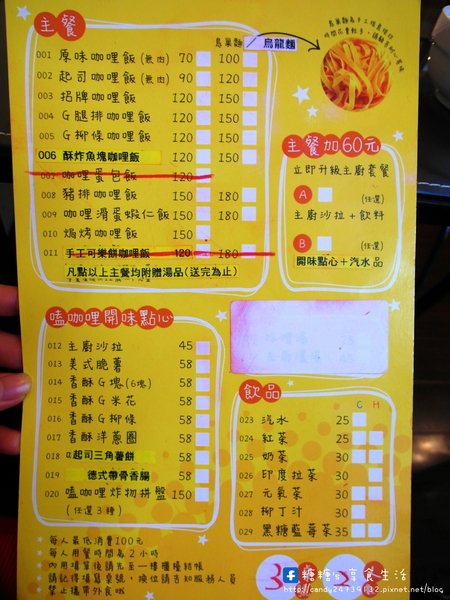 主餐
烏龍麵
001 原味咖哩飯(無肉) 70 100
002 起司咖哩飯(無肉) 90 120
003 招牌咖哩飯 120 150
004 G腿排咖哩飯 120 150
005 G柳條咖哩飯 120 150
006 酥炸魚塊咖哩飯 120 150
007 咖哩蛋包飯 120
008 豬排咖哩飯 150 180
009 咖哩滑蛋蝦仁飯 150 180
010 焗烤咖哩飯 150
011 手工可樂餅咖哩飯 120 180
凡點以上主餐均附贈湯品(送完為止)
主餐加60元
立即升級主廚套餐
A (任選)
主廚沙拉+飲料
B (任選)
開味點心+汽水
嗑咖哩開味點心
012 主廚沙拉 45
013 美式脆薯 58
014 香酥G塊(6塊) 58
015 香酥G米花 58
016 香酥G柳條 58
017 香酥洋蔥圈 58
018 起司三角薯餅 58
019 德式帶骨香腸 58
020 嗑咖哩炸物拼盤 150
(任選3種)
飲品
C H
023 汽水 25
024 紅茶 25
025 奶茶 30
026 印度拉茶 30
027 元氣茶 30
028 柳丁汁 30
029 黑糖藍莓茶 35
每人最低消費100元
每人用餐時間為2小時
內用填單後請先至一樓櫃檯結帳
請記得填寫桌號，換位請告知服務人員
禁止攜帶外食哦
糖糖's 享食生活
http://candy24739132.pixnet.net/blog